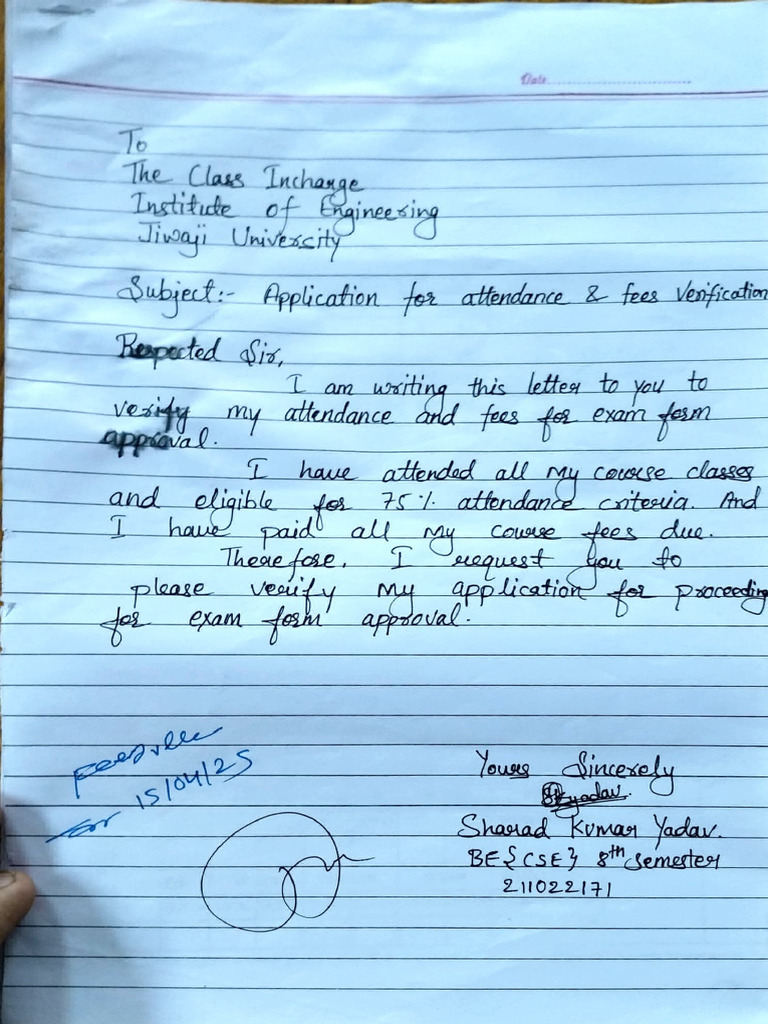 Date
To
The Class Incharge
Institute of Engineering
Jiwaji Univercity
Subject:- Application for attendance & fees Verification
Respected Sir,
I am writing this letter to you to
verify my attendance and fees for exam form
approval.
I have attended all my course classes
and eligible for 75% attendance criteria. And
I have paid all my course fees due.
Therefore, I request you to
please verify my application for proceeding
for exam form approval.
15/04/25
Yours Sincerely
yadav.
Sharad Kumar Yadav.
BE{CSE} 8th Semester
211022171